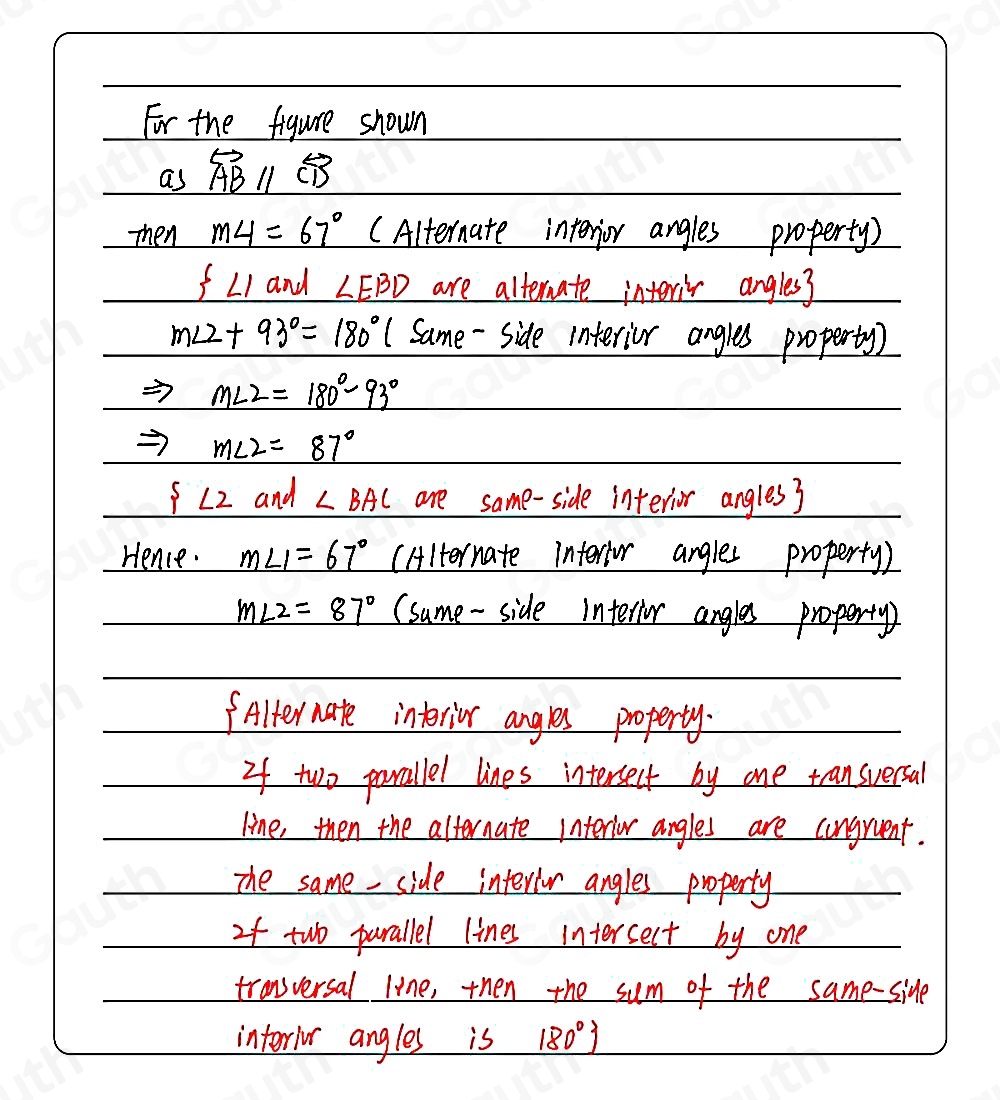 For the figure shown
as AB // CD
then m∠1 = 67° (Alternate interior angles property)
{∠1 and ∠EBD are alternate interior angles}
m∠2 + 93° = 180° (Same-side interior angles property)
⇒ m∠2 = 180° - 93°
⇒ m∠2 = 87°
{∠2 and ∠BAC are same-side interior angles}
Hence. m∠1 = 67° (Alternate interior angles property)
m∠2 = 87° (same-side interior angles property)
{Alternate interior angles property.
If two parallel lines intersect by one transversal
line, then the alternate interior angles are congruent.
The same-side interior angles property
If two parallel lines intersect by one
transversal line, then the sum of the same-side
interior angles is 180°}